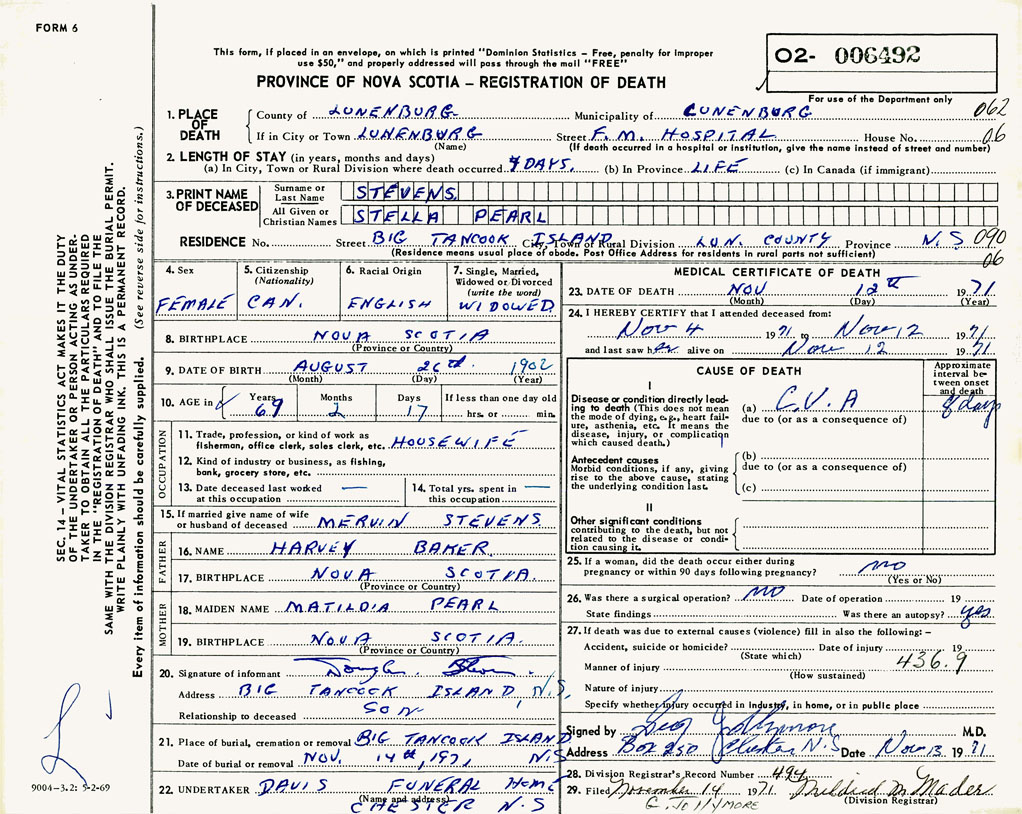 FORM 6
This form, if placed in an envelope, on which is printed "Dominion Statistics – Free, penalty for improper
use $50," and properly addressed will pass through the mail "FREE"
PROVINCE OF NOVA SCOTIA – REGISTRATION OF DEATH
O2- 006492
For use of the Department only
062
06
1. PLACE OF DEATH
County of LUNENBURG Municipality of LUNENBURG
If in City or Town LUNENBURG Street F.M. HOSPITAL House No.
(Name) (If death occurred in a hospital or institution, give the name instead of street and number)
2. LENGTH OF STAY (in years, months and days)
(a) In City, Town or Rural Division where death occurred 9 DAYS. (b) In Province LIFE (c) In Canada (if immigrant)
3. PRINT NAME OF DECEASED
Surname or Last Name STEVENS
All Given or Christian Names STELLA PEARL
RESIDENCE No. Street BIG TANCOOK ISLAND City, Town or Rural Division LUN. COUNTY Province N.S 090
(Residence means usual place of abode. Post Office Address for residents in rural parts not sufficient) 06
4. Sex FEMALE
5. Citizenship (Nationality) CAN.
6. Racial Origin ENGLISH
7. Single, Married, Widowed or Divorced (write the word) WIDOWED
8. BIRTHPLACE NOVA SCOTIA
(Province or Country)
9. DATE OF BIRTH AUGUST 26th 1902
(Month) (Day) (Year)
10. AGE in Years 69 Months 2 Days 17 If less than one day old hrs. or min.
OCCUPATION
11. Trade, profession, or kind of work as
fisherman, office clerk, sales clerk, etc. HOUSEWIFE
12. Kind of industry or business, as fishing,
bank, grocery store, etc.
13. Date deceased last worked
at this occupation —
14. Total yrs. spent in
this occupation —
15. If married give name of wife
or husband of deceased MERVIN STEVENS
FATHER
16. NAME HARVEY BAKER
17. BIRTHPLACE NOVA SCOTIA
(Province or Country)
MOTHER
18. MAIDEN NAME MATILDIA PEARL
19. BIRTHPLACE NOVA SCOTIA.
(Province or Country)
20. Signature of informant
Address BIG TANCOCK ISLAND, N.S.
Relationship to deceased SON
21. Place of burial, cremation or removal BIG TANCOOK ISLAND
Date of burial or removal NOV. 14th, 1971 N.S
22. UNDERTAKER DAVIS FUNERAL HOME
(Name and address) CHESTER N.S
MEDICAL CERTIFICATE OF DEATH
23. DATE OF DEATH NOV 12th 1971
(Month) (Day) (Year)
24. I HEREBY CERTIFY that I attended deceased from:
Nov 4 1971 to Nov 12 1971
and last saw her alive on Nov 12 1971
CAUSE OF DEATH
Approximate interval between onset and death
I
Disease or condition directly leading
to death (This does not mean
the mode of dying, e.g., heart failure,
asthenia, etc. It means the
disease, injury, or complication
which caused death.)
(a) C.V.A 8 days
due to (or as a consequence of)
Antecedent causes
Morbid conditions, if any, giving
rise to the above cause, stating
the underlying condition last.
(b)
due to (or as a consequence of)
(c)
II
Other significant conditions
contributing to the death, but not
related to the disease or condition
causing it.
25. If a woman, did the death occur either during
pregnancy or within 90 days following pregnancy? no
(Yes or No)
26. Was there a surgical operation? no Date of operation 19
State findings Was there an autopsy? yes
27. If death was due to external causes (violence) fill in also the following: –
Accident, suicide or homicide? Date of injury 19
(State which) 436.9
Manner of injury
(How sustained)
Nature of injury
Specify whether injury occurred in Industry, in home, or in public place
Signed by M.D.
Address Box 250 Chester N.S Date Nov 13 1971
28. Division Registrar's Record Number 494
29. Filed November 14 1971 Mildred M. Mader
G. JOLLYMORE (Division Registrar)
SEC. 14 – VITAL STATISTICS ACT MAKES IT THE DUTY
OF THE UNDERTAKER OR PERSON ACTING AS UNDER-
TAKER TO OBTAIN ALL THE PARTICULARS REQUIRED
IN THE "REGISTRATION OF DEATH" AND TO FILE THE
SAME WITH THE DIVISION REGISTRAR WHO SHALL ISSUE THE BURIAL PERMIT.
WRITE PLAINLY WITH UNFADING INK. THIS IS A PERMANENT RECORD.
Every item of information should be carefully supplied. (See reverse side for instructions.)
9004-3.2: 9-2-69